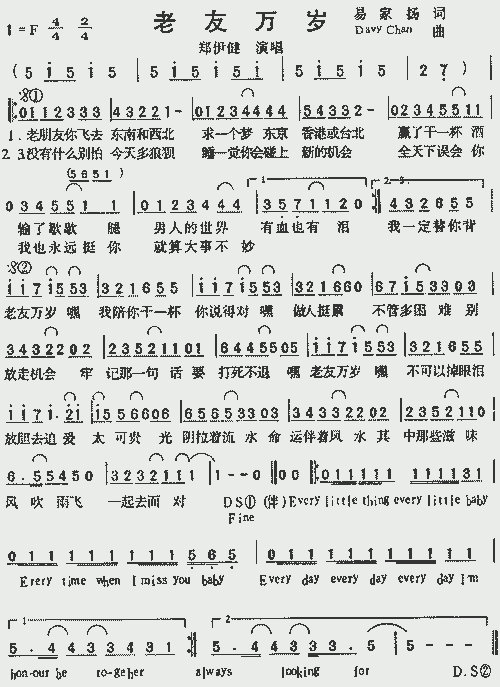 1=F 4/4 2/4 老友万岁 易家扬 词
Davy Chan 曲
郑伊健 演唱
( 5 i 5 i 5 | 5 i 5 i 5 i | 5 i 5 i 5 | 2 7 )
①
0112333 | 432221- | 01234444 | 54332- | 02345511
1. 老朋友你飞去 东南和西北 求一个梦 东京 香港或台北 赢了干一杯 酒
2. 3.没有什么别怕 今天多狼狈 睡一觉你会碰上 新的机会 全天下误会 你
(5651)
0 3 4 5 5 1 1 | 0 1 2 3 4 4 4 | 3 5 7 1 1 1 2 0 | 4 3 2 6 5 5
输了歇歇 腿 男人的世界 有血也有 泪 我一定替你背
我也永远挺 你 就算大事不 妙
②
i i 7 i 5 53 | 321655 | i i 7 i 5 53 | 321660 | 67i53303
老友万岁 嘿 我陪你干一杯 你说得对 嘿 做人挺累 不管多困 难 别
34322202 | 23521202 | 06445505 | i i 7 i 5 53 | 321655
放走机会 牢 记那一句 话 要 打死不退 嘿 老友万岁 嘿 不可以掉眼泪
放胆去追 爱 太 可贵 光 阴拉着流 水 命 运伴着风 水 其 中那些滋 味
6. 5 5 4 5 0 | 3 2 3 2 2 1 1 1 | 1 - - 0 | 0 0 | 0 1 1 1 1 1 1 | 1 1 1 1 3 1
风 吹 雨飞 一起去面 对 D S① (伴) Every little thing every little baby
Fine
0 1 1 1 1 1 1 1 1 5 6 5 | 0 1 1 1 1 1 1 1 1 1 1 1
Erery time when I miss you baby Every day every day every day I'm
1 2
5. 4 4 3 3 4 3 1 5. 4 4 3 3 3. 5 | 5 - - -
hon-our be ro-geher always looking for D.S②